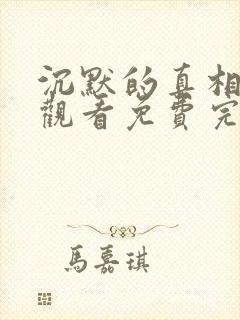 沉默的真相
觀看免費完
馬嘉琪